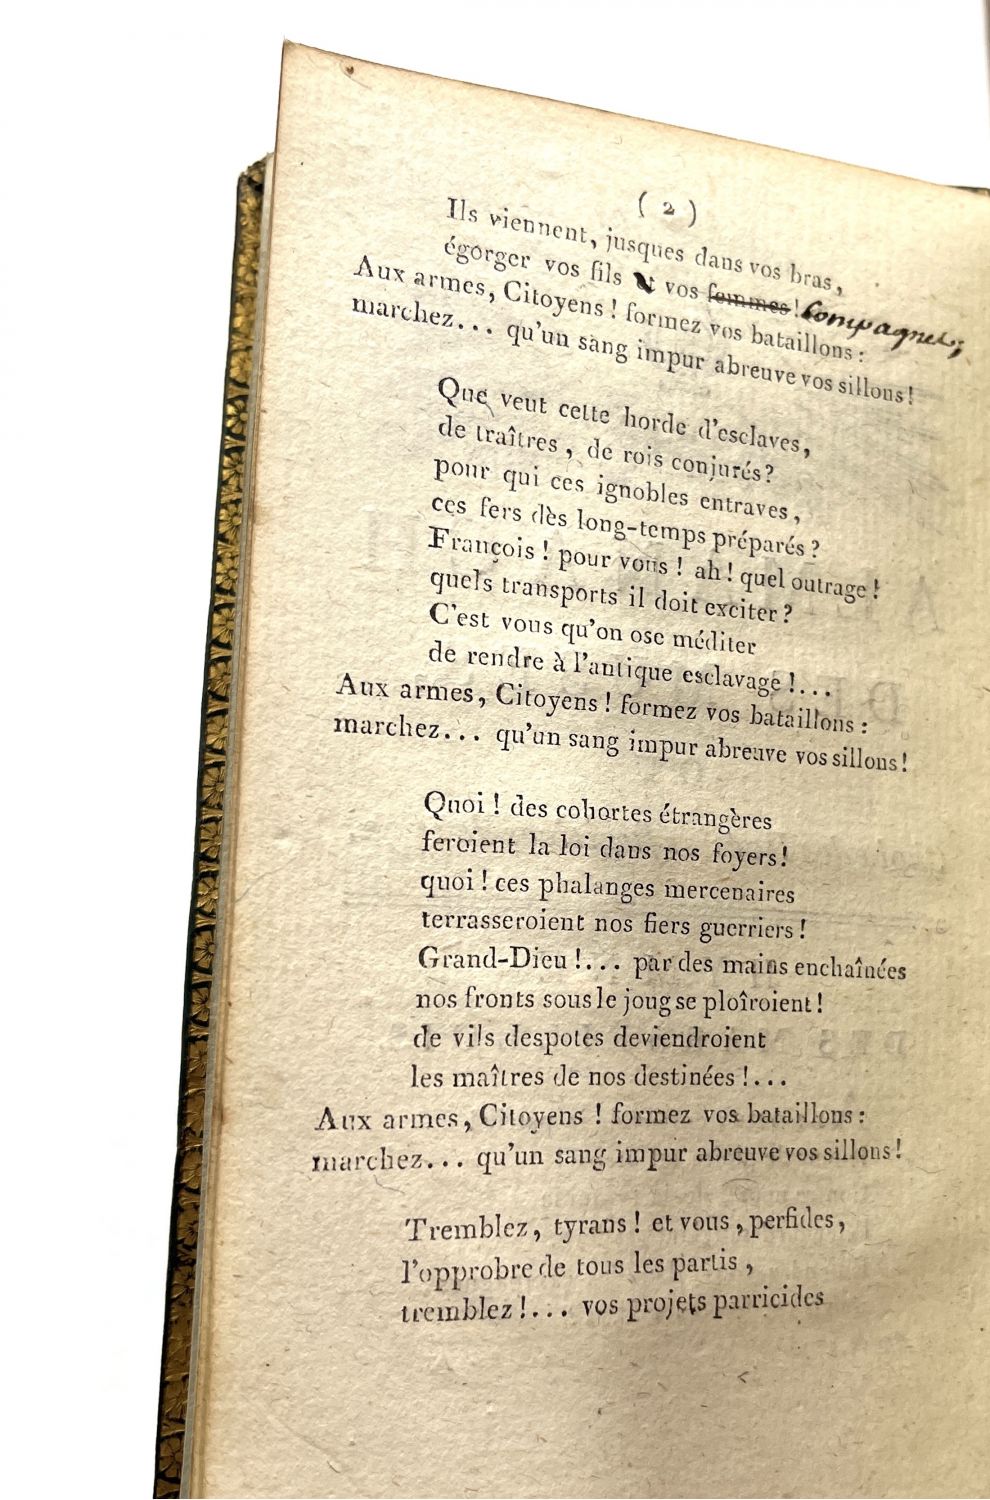 ( 2 )
Ils viennent, jusques dans vos bras,
égorger vos fils & vos femmes ! Compagnes;
Aux armes, Citoyens ! formez vos bataillons :
marchez... qu'un sang impur abreuve vos sillons !
Que veut cette horde d'esclaves,
de traîtres, de rois conjurés ?
pour qui ces ignobles entraves,
ces fers dès long-temps préparés ?
François ! pour vous ! ah ! quel outrage !
quels transports il doit exciter ?
C'est vous qu'on ose méditer
de rendre à l'antique esclavage !...
Aux armes, Citoyens ! formez vos bataillons :
marchez... qu'un sang impur abreuve vos sillons !
Quoi ! des cohortes étrangères
feroient la loi dans nos foyers !
quoi ! ces phalanges mercenaires
terrasseroient nos fiers guerriers !
Grand-Dieu !... par des mains enchaînées
nos fronts sous le joug se ploîroient !
de vils despotes deviendroient
les maîtres de nos destinées !...
Aux armes, Citoyens ! formez vos bataillons :
marchez... qu'un sang impur abreuve vos sillons !
Tremblez, tyrans ! et vous, perfides,
l'opprobre de tous les partis,
tremblez !... vos projets parricides